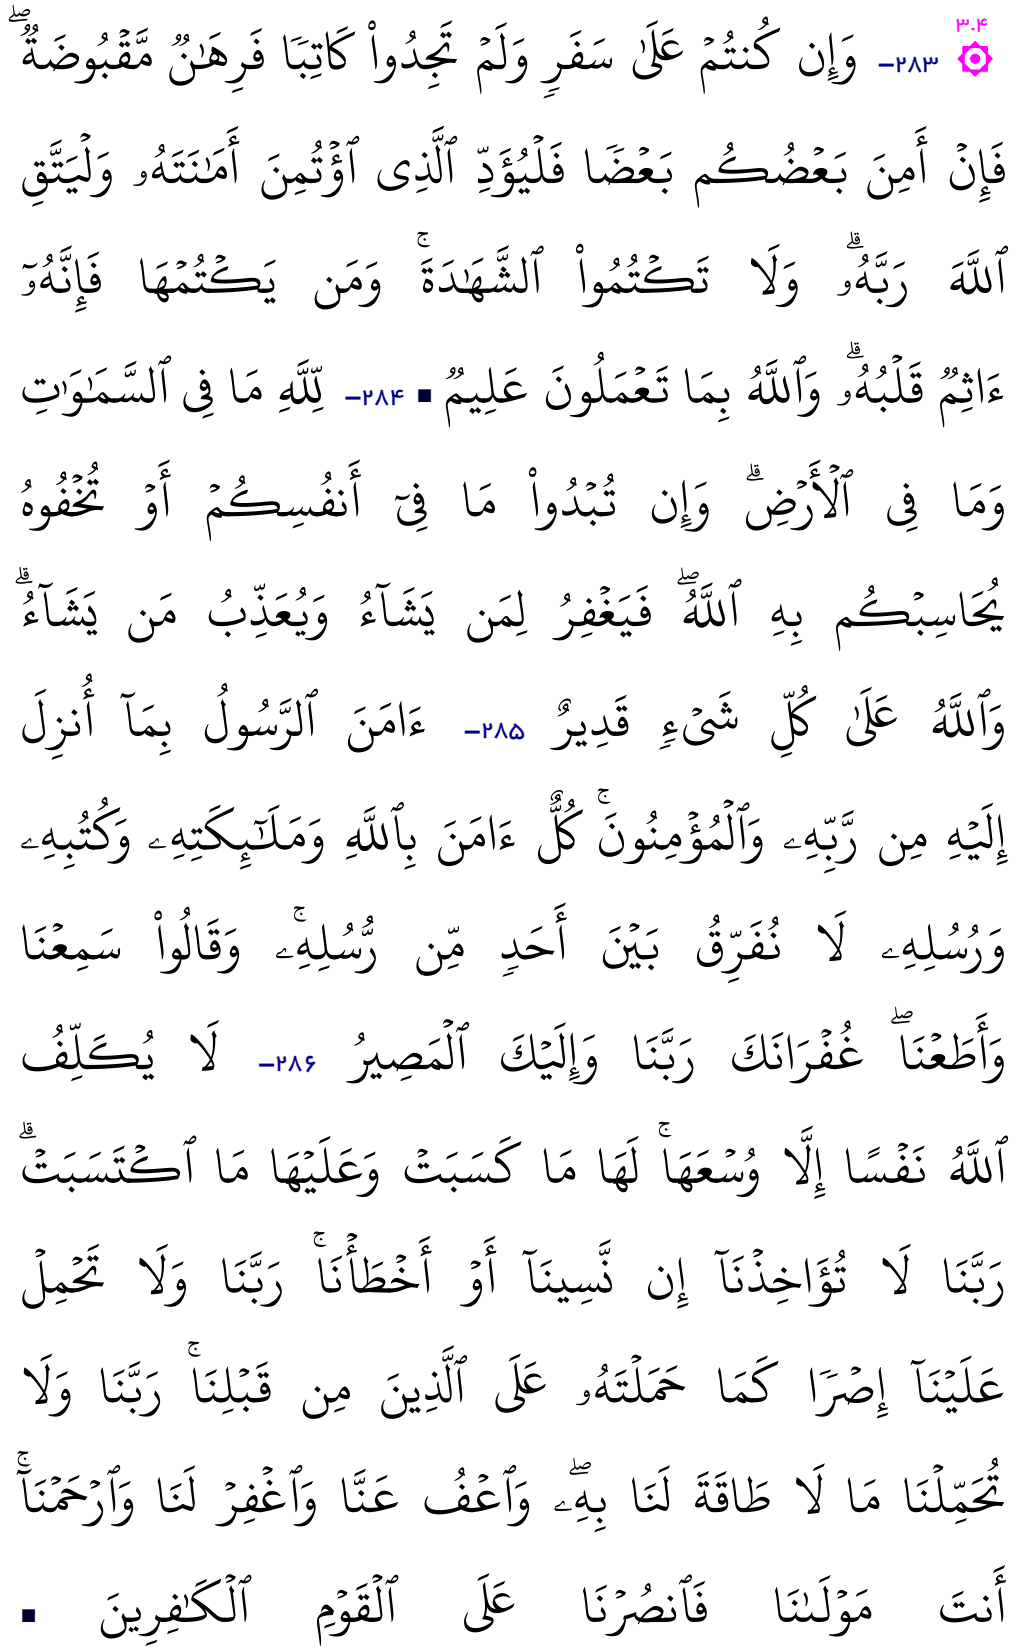 ۳.۴ ۞ ۲۸۳- وَإِن كُنتُمۡ عَلَىٰ سَفَرٖ وَلَمۡ تَجِدُواْ كَاتِبٗا فَرِهَٰنٞ مَّقۡبُوضَةٞۖ
فَإِنۡ أَمِنَ بَعۡضُكُم بَعۡضٗا فَلۡيُؤَدِّ ٱلَّذِى ٱؤۡتُمِنَ أَمَٰنَتَهُۥ وَلۡيَتَّقِ
ٱللَّهَ رَبَّهُۥۗ وَلَا تَكۡتُمُواْ ٱلشَّهَٰدَةَۚ وَمَن يَكۡتُمۡهَا فَإِنَّهُۥٓ
ءَاثِمٞ قَلۡبُهُۥۗ وَٱللَّهُ بِمَا تَعۡمَلُونَ عَلِيمٞ ■ ۲۸۴- لِّلَّهِ مَا فِى ٱلسَّمَٰوَٰتِ
وَمَا فِى ٱلۡأَرۡضِۗ وَإِن تُبۡدُواْ مَا فِىٓ أَنفُسِكُمۡ أَوۡ تُخۡفُوهُ
يُحَاسِبۡكُم بِهِ ٱللَّهُۖ فَيَغۡفِرُ لِمَن يَشَآءُ وَيُعَذِّبُ مَن يَشَآءُۗ
وَٱللَّهُ عَلَىٰ كُلِّ شَىۡءٖ قَدِيرٌ ۲۸۵- ءَامَنَ ٱلرَّسُولُ بِمَآ أُنزِلَ
إِلَيۡهِ مِن رَّبِّهِۦ وَٱلۡمُؤۡمِنُونَۚ كُلٌّ ءَامَنَ بِٱللَّهِ وَمَلَٰٓئِكَتِهِۦ وَكُتُبِهِۦ
وَرُسُلِهِۦ لَا نُفَرِّقُ بَيۡنَ أَحَدٖ مِّن رُّسُلِهِۦۚ وَقَالُواْ سَمِعۡنَا
وَأَطَعۡنَاۖ غُفۡرَانَكَ رَبَّنَا وَإِلَيۡكَ ٱلۡمَصِيرُ ۲۸۶- لَا يُكَلِّفُ
ٱللَّهُ نَفۡسًا إِلَّا وُسۡعَهَاۚ لَهَا مَا كَسَبَتۡ وَعَلَيۡهَا مَا ٱكۡتَسَبَتۡۗ
رَبَّنَا لَا تُؤَاخِذۡنَآ إِن نَّسِينَآ أَوۡ أَخۡطَأۡنَاۚ رَبَّنَا وَلَا تَحۡمِلۡ
عَلَيۡنَآ إِصۡرٗا كَمَا حَمَلۡتَهُۥ عَلَى ٱلَّذِينَ مِن قَبۡلِنَاۚ رَبَّنَا وَلَا
تُحَمِّلۡنَا مَا لَا طَاقَةَ لَنَا بِهِۦۖ وَٱعۡفُ عَنَّا وَٱغۡفِرۡ لَنَا وَٱرۡحَمۡنَآۚ
أَنتَ مَوۡلَىٰنَا فَٱنصُرۡنَا عَلَى ٱلۡقَوۡمِ ٱلۡكَٰفِرِينَ ■